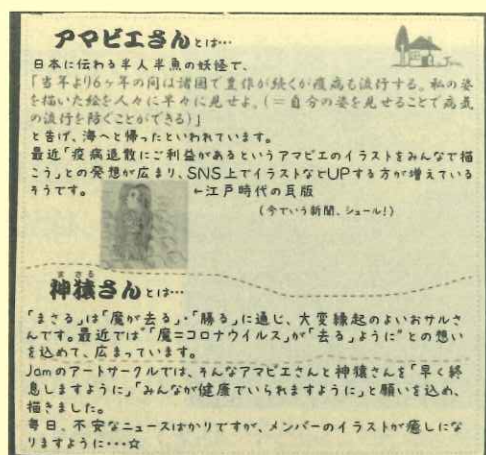 アマビエさんとは…
Jam
日本に伝わる半人半魚の妖怪で、
「当年より6ヶ年の間は諸国で豊作が続くが疫病も流行する。私の姿
を描いた絵を人々に早々に見せよ。(=自分の姿を見せることで病気
の流行を防ぐことができる)」
と告げ、海へと帰ったといわれています。
最近「疫病退散にご利益があるというアマビエのイラストをみんなで描
こう」との発想が広まり、SNS上でイラストなどUPする方が増えている
そうです。
←江戸時代の瓦版
(今でいう新聞、シュール!)
まさる
神猿さんとは…
「まさる」は「魔が去る」・「勝る」に通じ、大変縁起のよいおサルさ
んです。最近では"「魔=コロナウイルス」が「去る」ように"との想い
を込めて、広まっています。
Jamのアートサークルでは、そんなアマビエさんと神猿さんを「早く終
息しますように」「みんなが健康でいられますように」と願いを込め、
描きました。
毎日、不安なニュースばかりですが、メンバーのイラストが癒しにな
りますように・・・☆